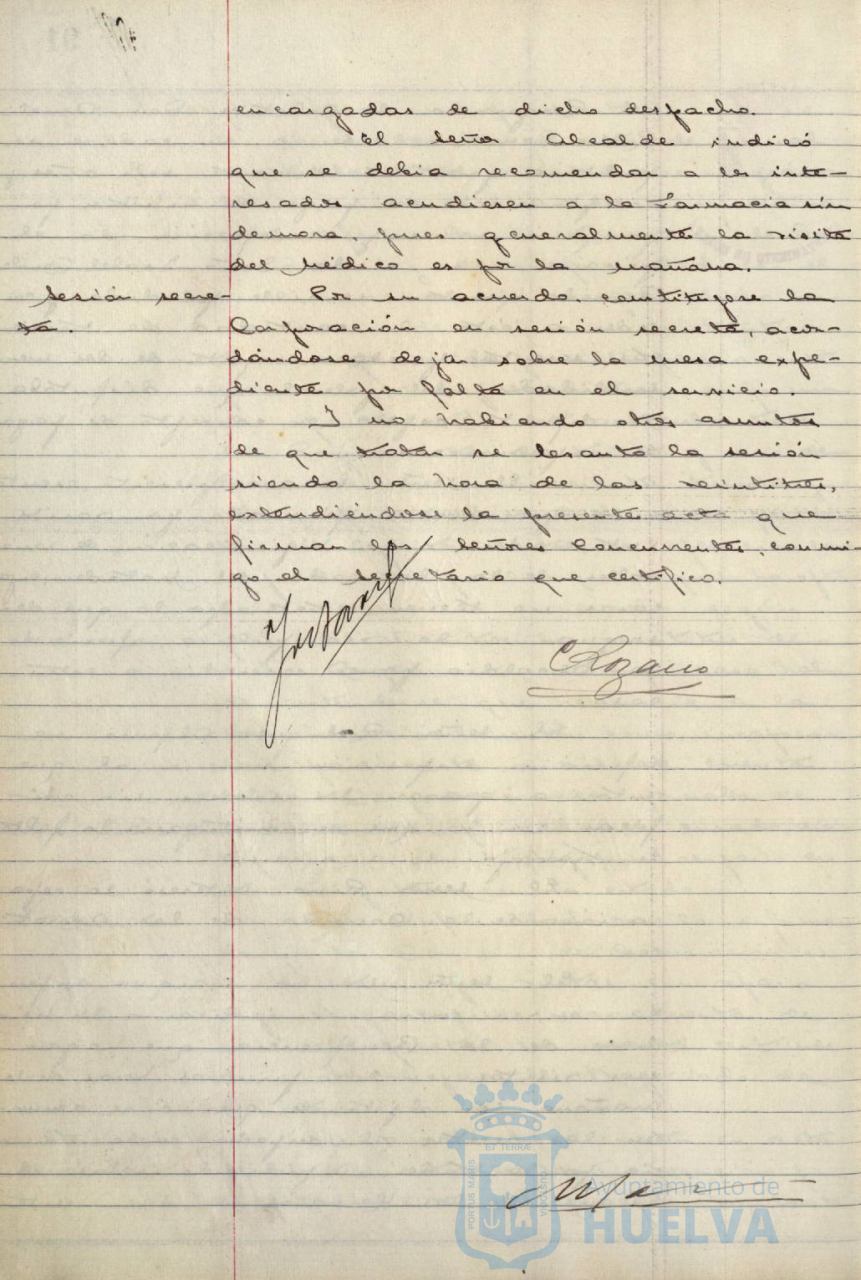 encargadas de dicho despacho.
El Señor Alcalde indicó
que se debia recomendar a los inte-
resados acudiesen a la Farmacia sin
demora, pues generalmente la visita
del Médico es por la mañana.
Sesión secre-
ta.
Por su acuerdo, constitúyose la
Corporación en sesión secreta, acor-
dándose dejar sobre la mesa expe-
diente por falta en el servicio.
Y no habiendo otros asuntos
de que tratar se levantó la sesión
siendo la hora de las veintitres,
extendiéndose la presente acta que
firman los Señores Concurrentes, conmi-
go el Secretario que certifico.
C Lozano
ET TERRÆ
PORTUS MARIS
Ayuntamiento de
HUELVA